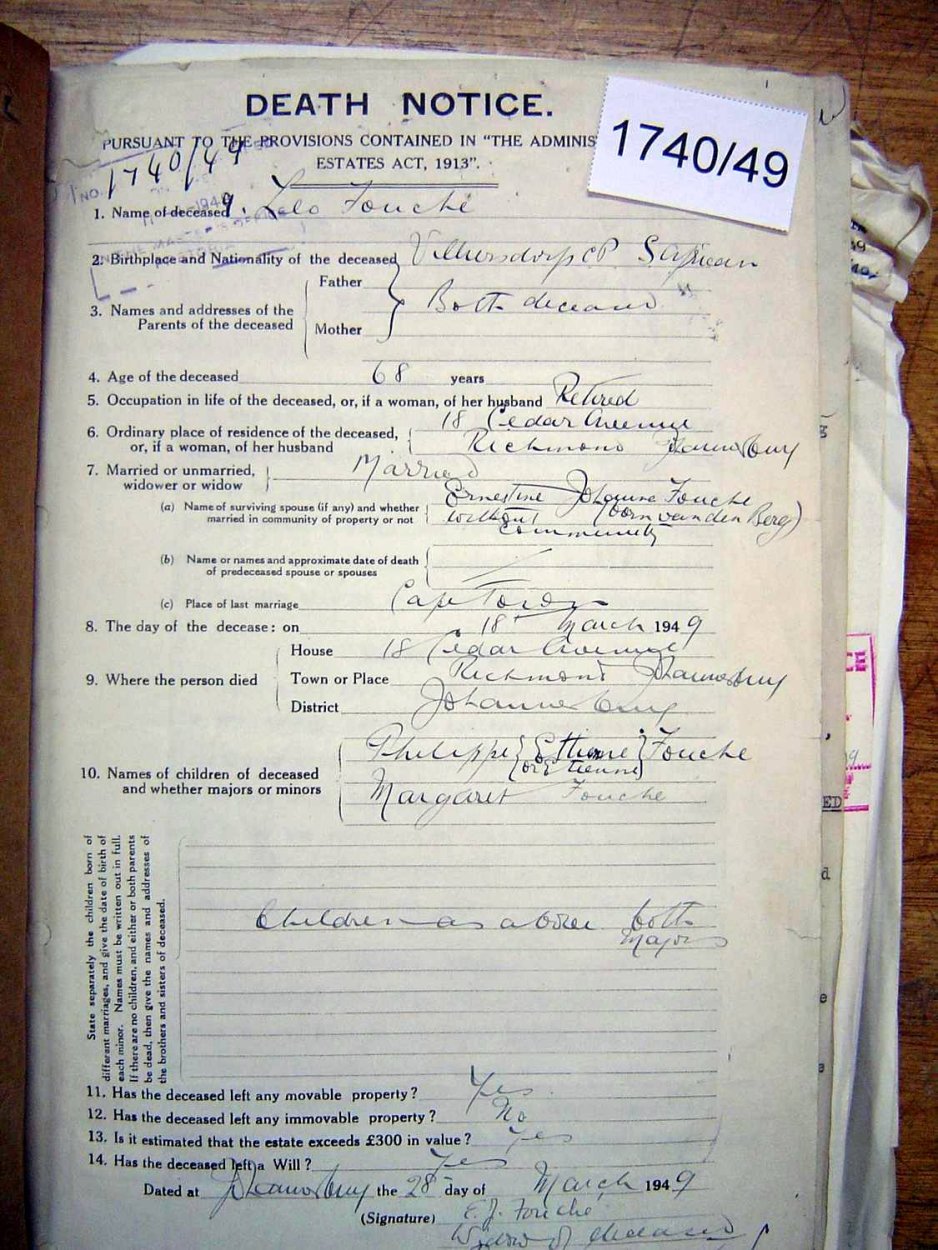 DEATH NOTICE.
PURSUANT TO THE PROVISIONS CONTAINED IN "THE ADMINIS
ESTATES ACT, 1913".
1740/49
NO. 1740/49
1. Name of deceased Leo Fouché
2. Birthplace and Nationality of the deceased Villiersdorp CP
3. Names and addresses of the Parents of the deceased
Father
Both deceased
Mother
4. Age of the deceased 68 years
5. Occupation in life of the deceased, or, if a woman, of her husband Retired
6. Ordinary place of residence of the deceased, 18 Cedar Avenue
or, if a woman, of her husband Richmond Johannesburg
7. Married or unmarried, widower or widow Married
(a) Name of surviving spouse (if any) and whether Ernestine Johanna Fouche
married in community of property or not without (born van den Berg)
Community
(b) Name or names and approximate date of death
of predeceased spouse or spouses
(c) Place of last marriage Cape Town
8. The day of the decease: on 18 March 1949
9. Where the person died
House 18 Cedar Avenue
Town or Place Richmond Johannesburg
District Johannesburg
10. Names of children of deceased
and whether majors or minors
Philippe Ethienne Fouche
(or Etienne)
Margaret Fouche
State separately the children born of
different marriages, and give the date of birth of
each minor. Names must be written out in full.
If there are no children, and either or both parents
be dead, then give the names and addresses of
the brothers and sisters of deceased.
Children as above both
Majors
11. Has the deceased left any movable property? Yes
12. Has the deceased left any immovable property? No
13. Is it estimated that the estate exceeds £300 in value? Yes
14. Has the deceased left a Will? Yes
Dated at Johannesburg the 28 day of March 1949
(Signature) E. J. Fouché
Widow of deceased